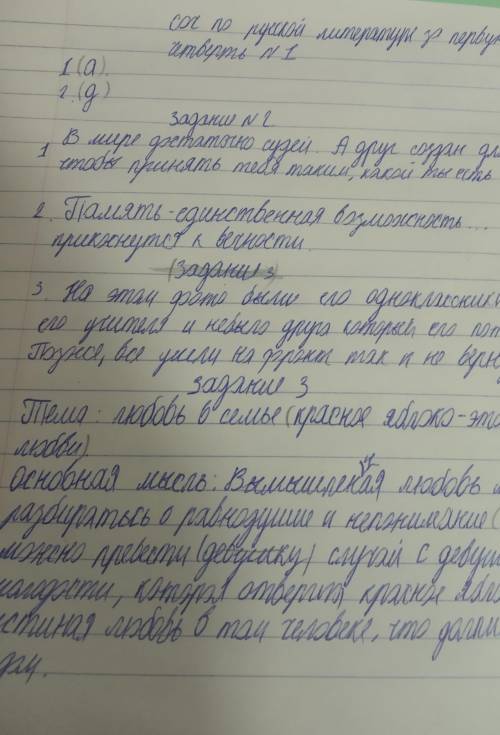 соч по русской литературе за первую
четверть N 1
1.(а).
2.(д)
Задание N 2
1 В мире достаточно судей. А друг создан для
чтобы принять тебя таким, какой ты есть
2. Память-единственная возможность...
прикоснутся к вечности.
(Задание 3)
3. На этом фото были его одноклассники
его учителя и небыло друга который его
Позже, все ушли на фронт так и не
Задание 3
Тема: любовь в семье (красное яблоко-это
любви).
основная мысль: любовь
о равнодушие и непонимание (
можно превести (девушку) случай с
которая отвергла красное
любовь в том человеке, что